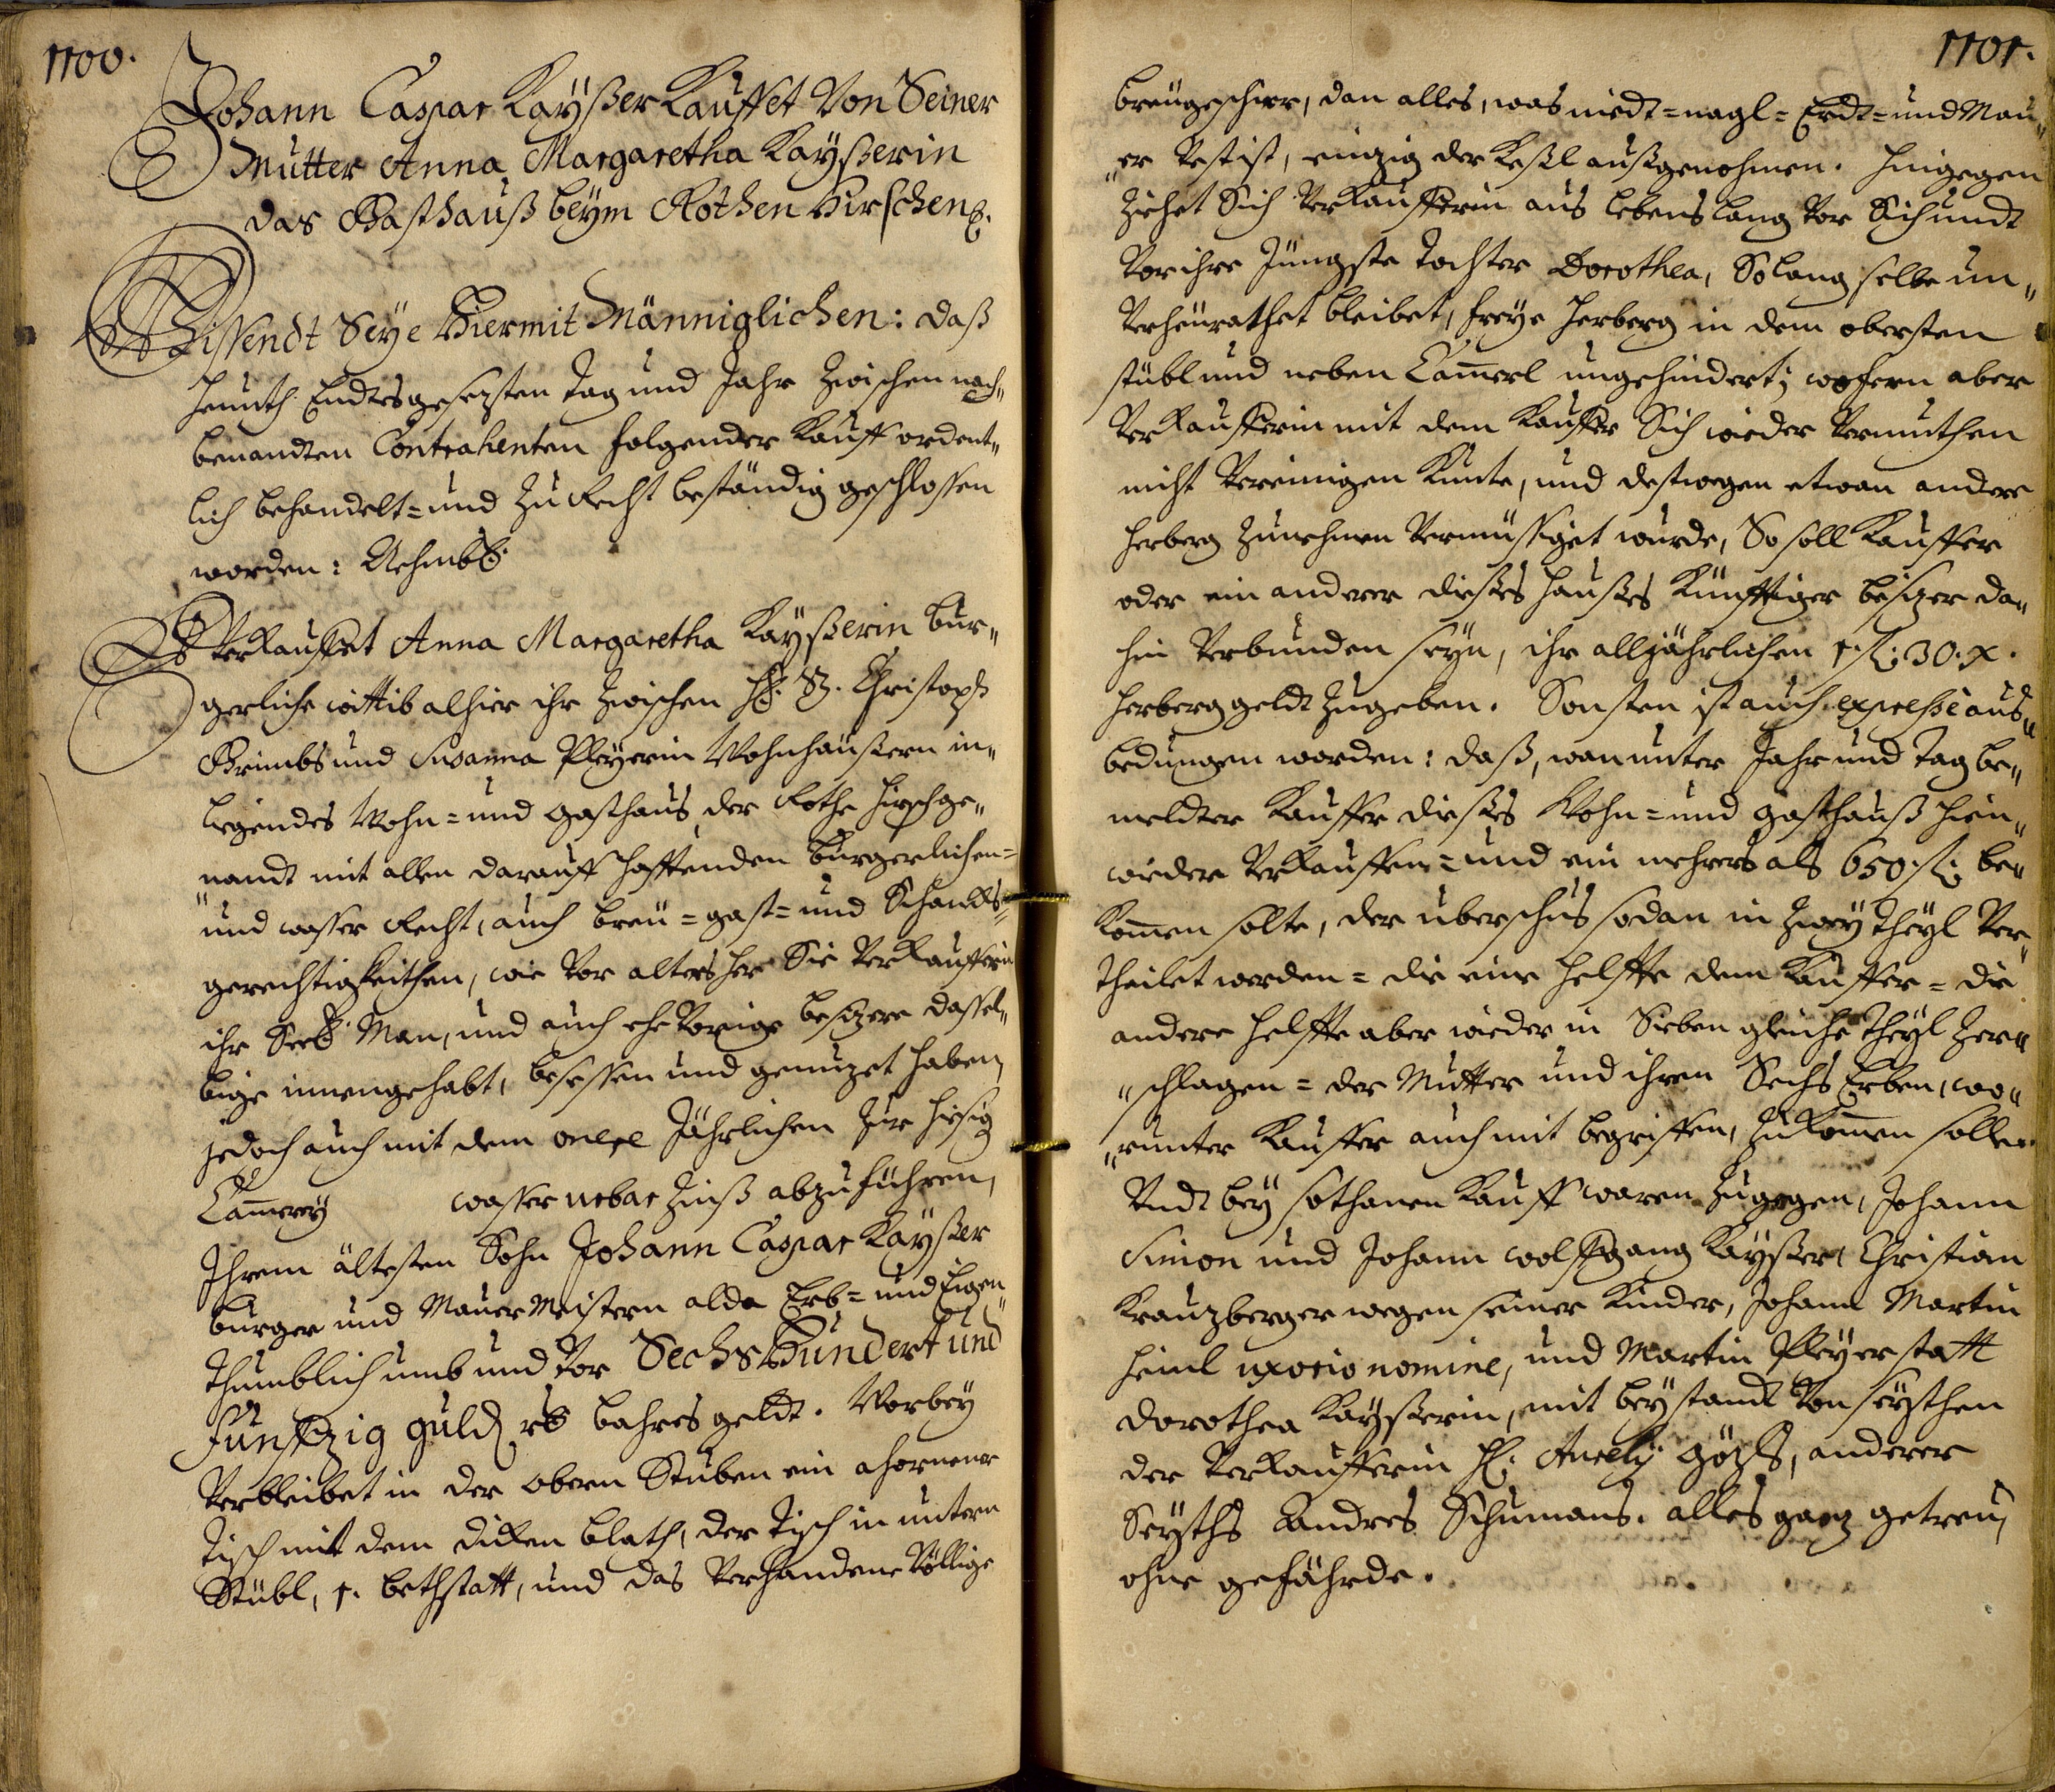 1100.
Johann Caspar Kayßer Kauffet Von Seiner
Mutter Anna Margaretha Kayßerin
das Gasthauß beÿm Rothen Hirschen
Wissendt Seÿe Hiermit Männiglichen: daß
heunth Endtsgesezten tag und Jahr zwischen nach„
benandten Contrahenten folgender Kauff ordent„
lich behandelt= und zu Recht beständig geschlossen
worden: Nehmbl:
Es Verkauffet Anna Margaretha Kayßerin bur„
gerliche wittib alhier ihr zwischen H: Christoph
Grimbs und Susanna Pleÿerin Wohnhäußern in„
ligendes Wohn= und Gasthaus, der Rothe Hirsch ge„
„nandt mit allen darauff hafftenden burgerlichen=
„und wasser Recht, auch breu= gast= und Schanckhs„
gerechtigkeithen, wie Vor alters her Sie Verkaufferin
ihr Seel: Man, und auch ehe Vorige besizere dassel„
bige innengehabt, besessen und genuzet haben,
jedoch auch mit dem onere Jährlichen zur hiesig
Cam̄ereÿ wasser urbar Zinß abzuführen,
Ihrem ältesten Sohn Johann Caspar Kaÿßer
burger und Mauer Meistern alda Erb= und Eigen„
thumblich umb und Vor Sechs Hundert und
Funffzig guld rh bahres geldt. Worbeÿ
Verbleibet in der obern Stuben ein ahornener
Tisch mit dem dicken blath, der Tisch in untern
Stübl, 1. bethstatt, und das Verhandene Völlige
1101.
breugeschirr, dan alles, was niedt= nagl= Erdt= und Mau„
„er Vest ist, einzig der Keßl außgenohmen. Hingegen
ziehet Sich Verkaufferin aus lebens lang Vor Sich undt
Vor ihre Jüngste tochter Dorothea, So lang selbe un„
Verheurathet bleibet, freÿe Herberg in dem obersten
stübl und neben Cam̄erl ungehindert; wofern aber
Verkaufferin mit dem Kauffer Sich wieder Vermuthen
nicht Vereinigen Kunte, und destwegen etwan andere
Herberg zunehmen Vermüssiget wurde, So soll Kauffer
oder ein anderer dießes Haußes Künfftiger besizer da„
hin Verbunden seÿn, ihr alljährlichen 1. fl: 30. x.
Herberg geldt zugeben. Sonsten ist auch expressè aus„
bedungen worden: daß, wan unter Jahr und Tag be„
meldter Kauffer dießes Wohn= und gasthauß hien„
wieder Verkauffen= und ein mehrers als 650. fl: be„
Kom̄en solte, der uberschus sodan in zweÿ theÿl Ver„
theilet werden= die eine helffte dem Kauffer= die
andere helffte aber wieder in Sieben gleiche theÿl zer„
„schlagen= der Mutter und ihren Sechs Erben, wo„
„runter Kauffer auch mit begriffen, zukom̄en sollen.
Undt beÿ sothanen Kauff waren zugegen, Johann
Simon und Johann wolffgang Kaÿßer, Christian
Kreuzberger wegen seiner Kinder, Johann Martin
Heinl uxorio nomine, und Martin Pleÿer statt
Dorothea Kaÿßerin, mit beÿstand Von seÿthen
der Verkaufferin H: Aurelÿ Göz, anderer
Seÿths Andres Schumans. alles ganz getreu,
ohne gefährde.